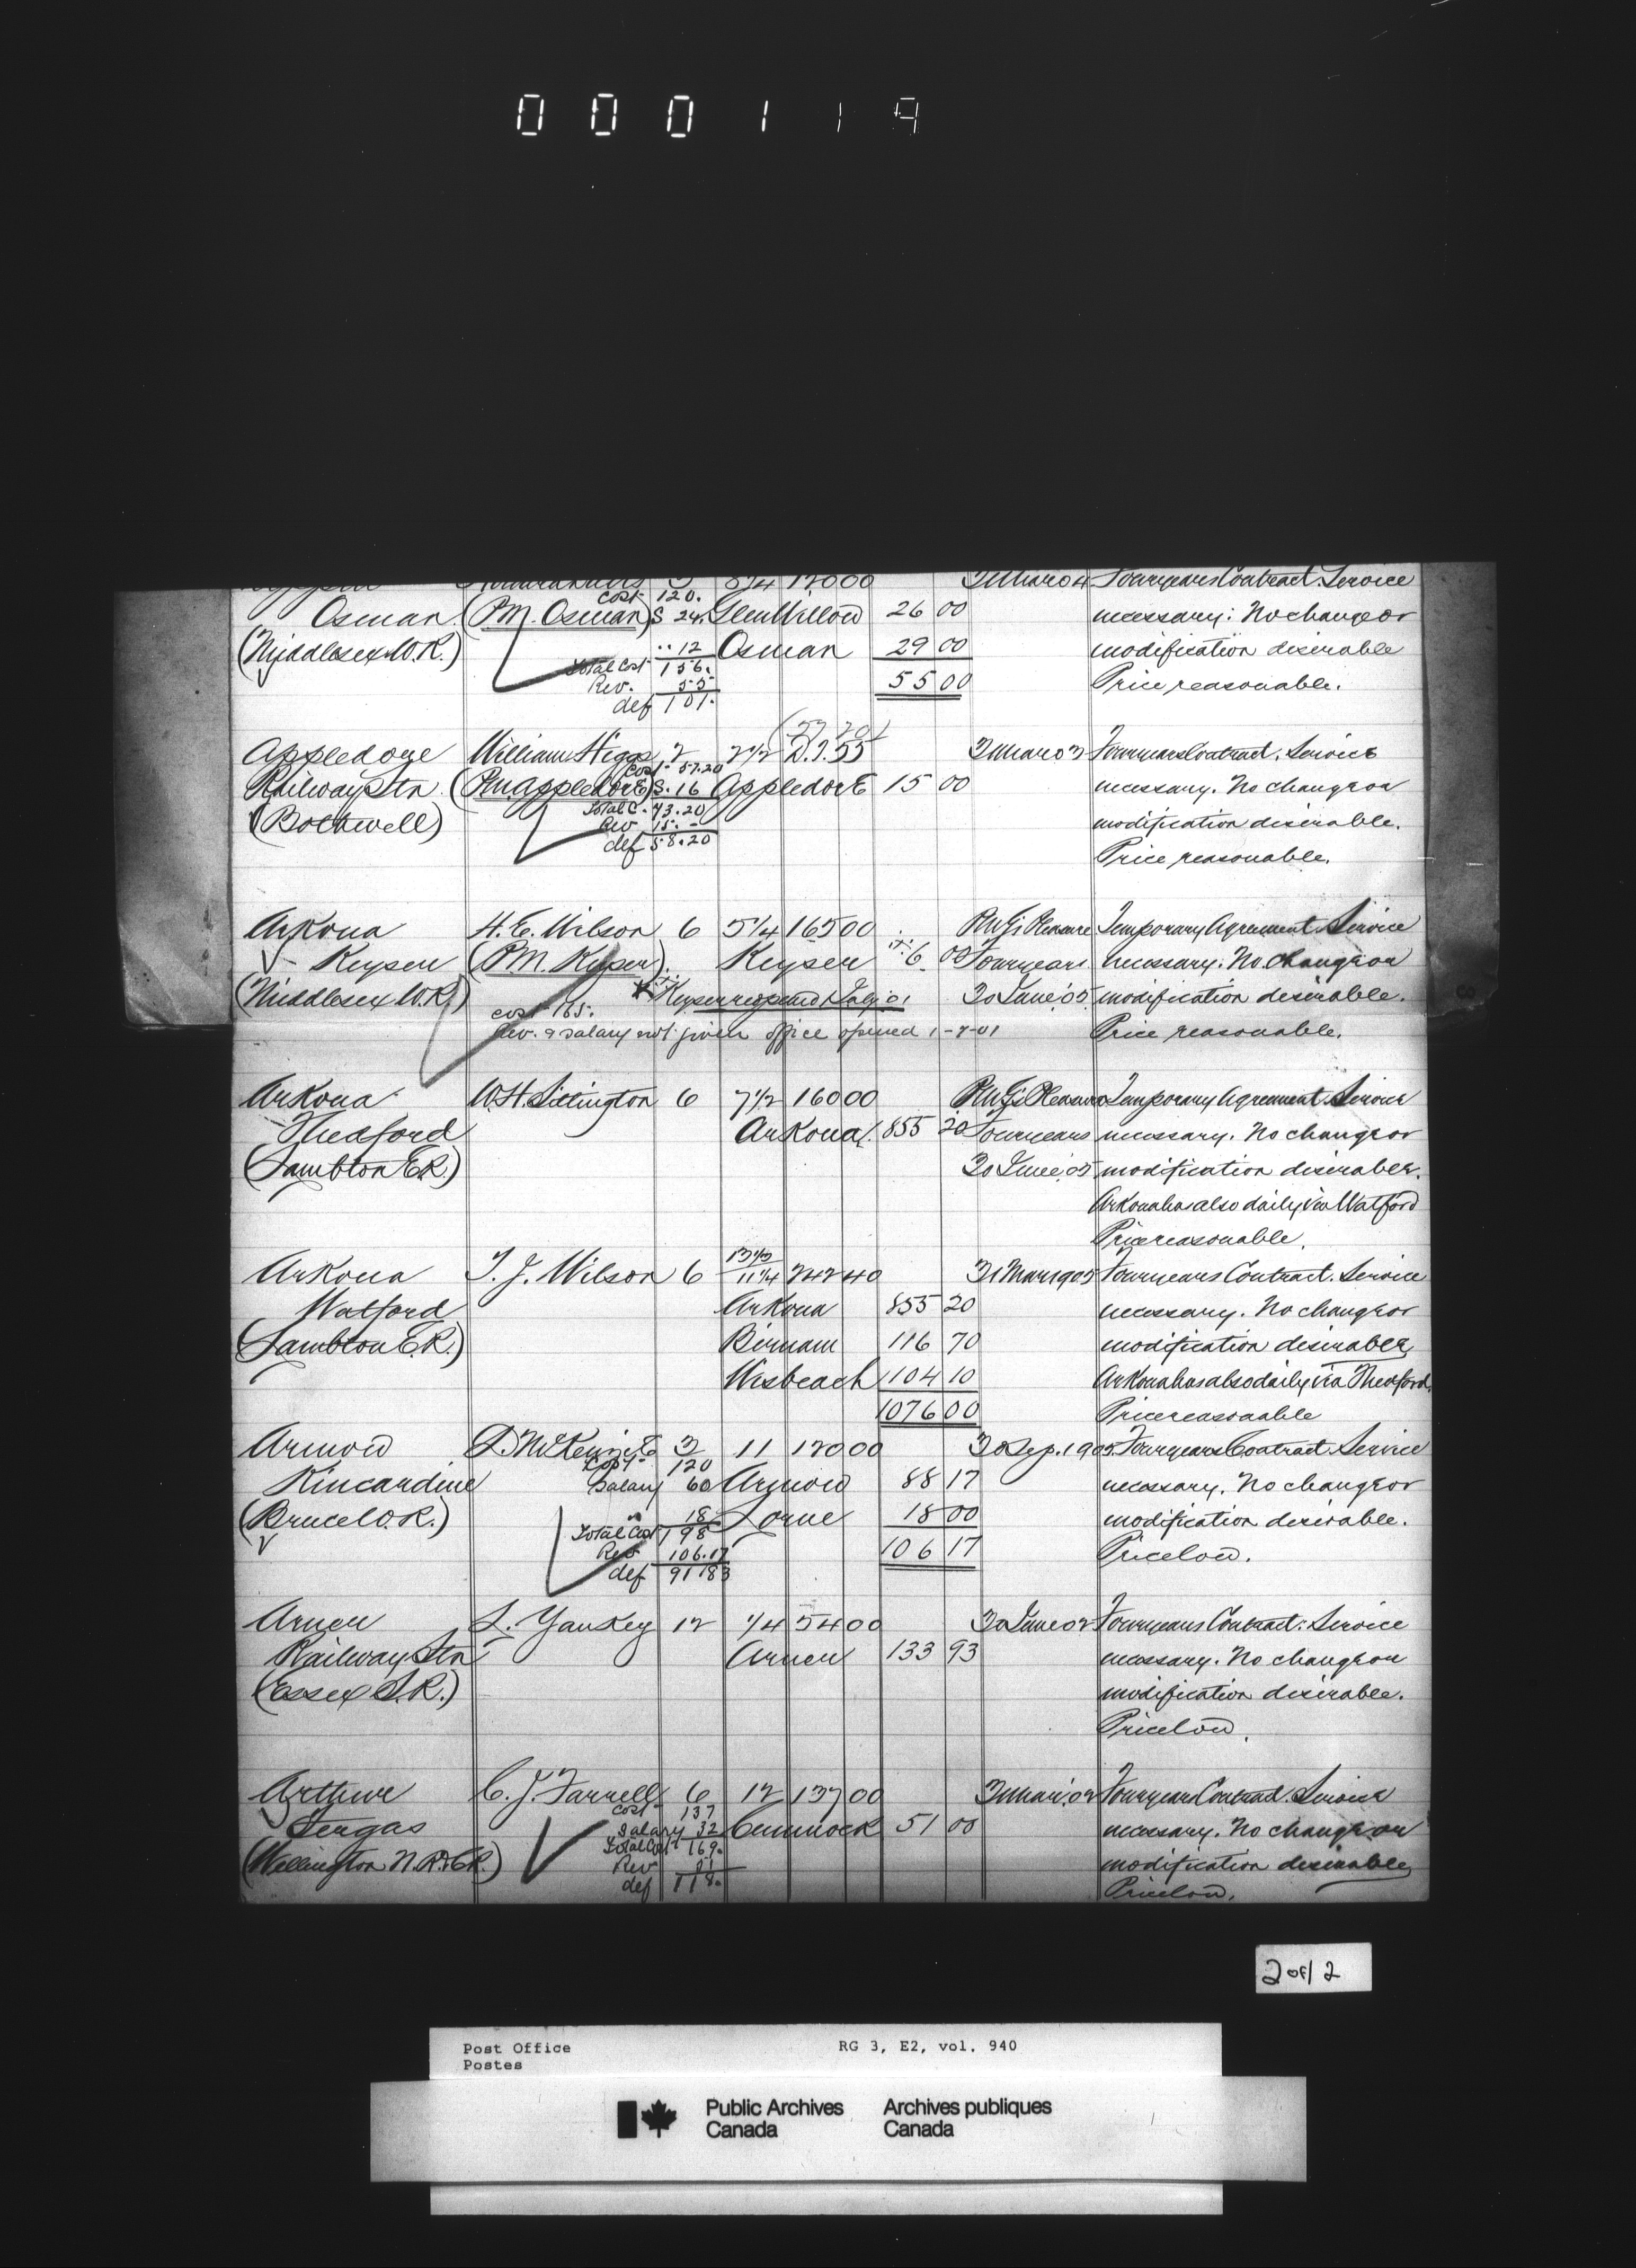 000119
3 8 1/4 120 00 31 Mar 04 Four years Contract. Service
cost 120.
Osman (P.M. Osman) S 24. Glen Willow 26 00 necessary. No change or
(Middlesex W.R.) " 12 Osman 29 00 modification desirable
Total Cost 156. 55 00 Price reasonable.
Rev. 55
def 101.
(57 20)
Appledore William Higgs 2 2 1/2 D.T. 55 31 Mar 03 Four years Contract. Service
Cost 57.20
Railway Stn (P.M. Appledore) S. 16 Appledore 15 00 necessary. No change or
(Bothwell) Total C. 73.20 modification desirable.
Rev 15.-
def 58.20 Price reasonable.
Arkona H. E. Wilson 6 5 1/4 165 00 P.M.G's Pleasure Temporary Agreement. Service
Keyser (P.M. Keyser) Keyser 6 00 Four years necessary. No change or
(Middlesex W.R.) Keyser reopened 1 July 01 30 June '05 modification desirable.
cost 165.
Rev. & salary not given office opened 1-7-01 Price reasonable.
Arkona W.H. Sitlington 6 7 1/2 160 00 P.M.G's Pleasure Temporary Agreement Service
Thedford Arkona 855 20 Four years necessary. No change or
(Lambton E.R.) 30 June '05 modification desirable.
Arkona has also daily via Watford
Price reasonable.
13 1/3
Arkona T. J. Wilson 6 11 1/4 242 40 31 Mar 1905 Four years Contract. Service
Watford Arkona 855 20 necessary. No change or
(Lambton E.R.) Birnam 116 70 modification desirable
Wisbeach 104 10 Arkona has also daily via Thedford.
1076 00 Price reasonable
Armow D. McKenzie 3 11 120 00 30 Sep. 1905 Four years Contract Service
Cost 120
Kincardine Salary 60 Armow 88 17 necessary. No change or
(Bruce W.R.) " 18 Lorne 18 00 modification desirable.
Total Cost 198
Rev 106.17 106 17 Price low.
def 91 83
Arner L. Yaukey 12 1/4 54 00 30 June 02 Four years Contract. Service
Railway Stn Arner 133 93 necessary. No change or
(Essex S.R.) modification desirable.
Price low.
Arthur C. J. Farrell 6 12 137 00 31 Mar. '02 Four years Contract. Service
Cost 137
Fergus Salary 32 Cumnock 51 00 necessary. No change or
Total Cost 169.
(Wellington N.R. & C.R.) Rev 51 modification desirable
def 118. Price low.
2 of 2
Post Office RG 3, E2, vol. 940
Postes
Public Archives Archives publiques
Canada Canada